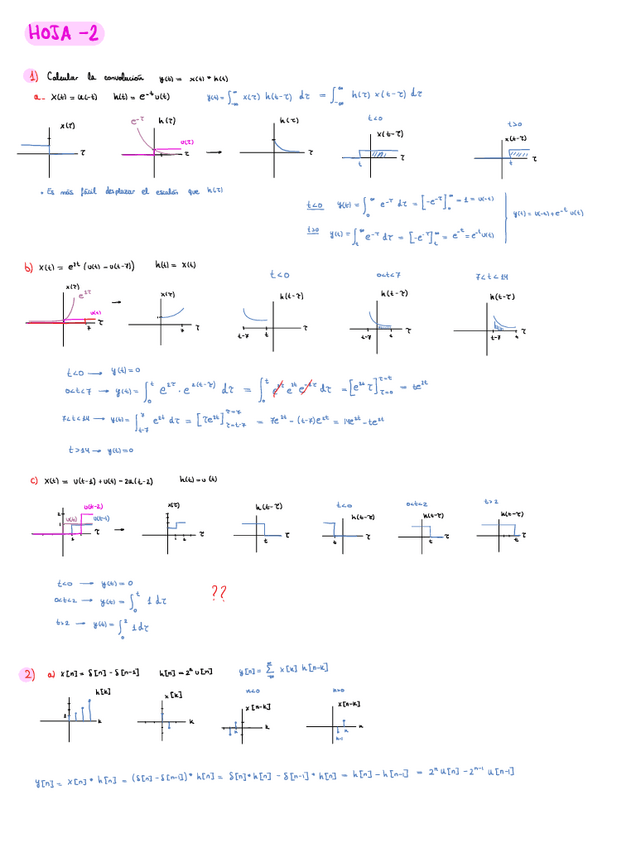 HOJA -2
1) Calcular la convolución y(t) = x(t) * h(t)
a.- x(t) = u(-t) h(t) = e^-t u(t) y(t) = ∫_-∞^∞ x(τ) h(t-τ) dτ = ∫_-∞^∞ h(τ) x(t-τ) dτ
x(τ) τ e^-τ h(τ) u(τ) τ → h(τ) τ t<0 x(t-τ) t τ t>0 x(t-τ) t τ
• Es más fácil desplazar el escalón que h(τ)
t<0 y(t) = ∫_0^∞ e^-τ dτ = [-e^-τ]_0^∞ = 1 = u(-t)
t>0 y(t) = ∫_t^∞ e^-τ dτ = [-e^-τ]_t^∞ = e^-t = e^-t u(t)
y(t) = u(-t) + e^-t u(t)
b) x(t) = e^2t (u(t) - u(t-7)) h(t) = x(t)
t<0 0<t<7 7<t<14
x(τ) e^2τ τ 7 → x(τ) τ h(t-τ) t-7 t τ h(t-τ) t-7 t τ h(t-τ) t-7 t τ
t<0 → y(t) = 0
0<t<7 → y(t) = ∫_0^t e^2τ · e^2(t-τ) dτ = ∫_0^t e^2τ e^2t e^-2τ dτ = [e^2t τ]_τ=0^τ=t = te^2t
7<t<14 → y(t) = ∫_t-7^7 e^2t dτ = [τe^2t]_τ=t-7^τ=7 = 7e^2t - (t-7)e^2t = 14e^2t - te^2t
t>14 → y(t) = 0
h(t) = u(t)
u(t) → x(τ) τ h(t-τ) t τ t<0 h(t-τ) t τ 0<t<2 h(t-τ) t τ t>2 h(t-τ) t τ
t<0 → y(t) = 0
0<t<2 → y(t) = ∫_0^t 1 dτ
t>2 → y(t) = ∫_0^2 1 dτ
??
2) a) h[n] = 2^n u[n] y[n] = Σ_-∞^∞ x[k] h[n-k]
h[k] k x[k] k n<0 x[n-k] k n>0 x[n-k] k
y[n] = x[n] * h[n] = (δ[n] - δ[n-1]) * h[n] = δ[n] * h[n] - δ[n-1] * h[n] = h[n] - h[n-1] = 2^n u[n] - 2^n-1 u[n-1]